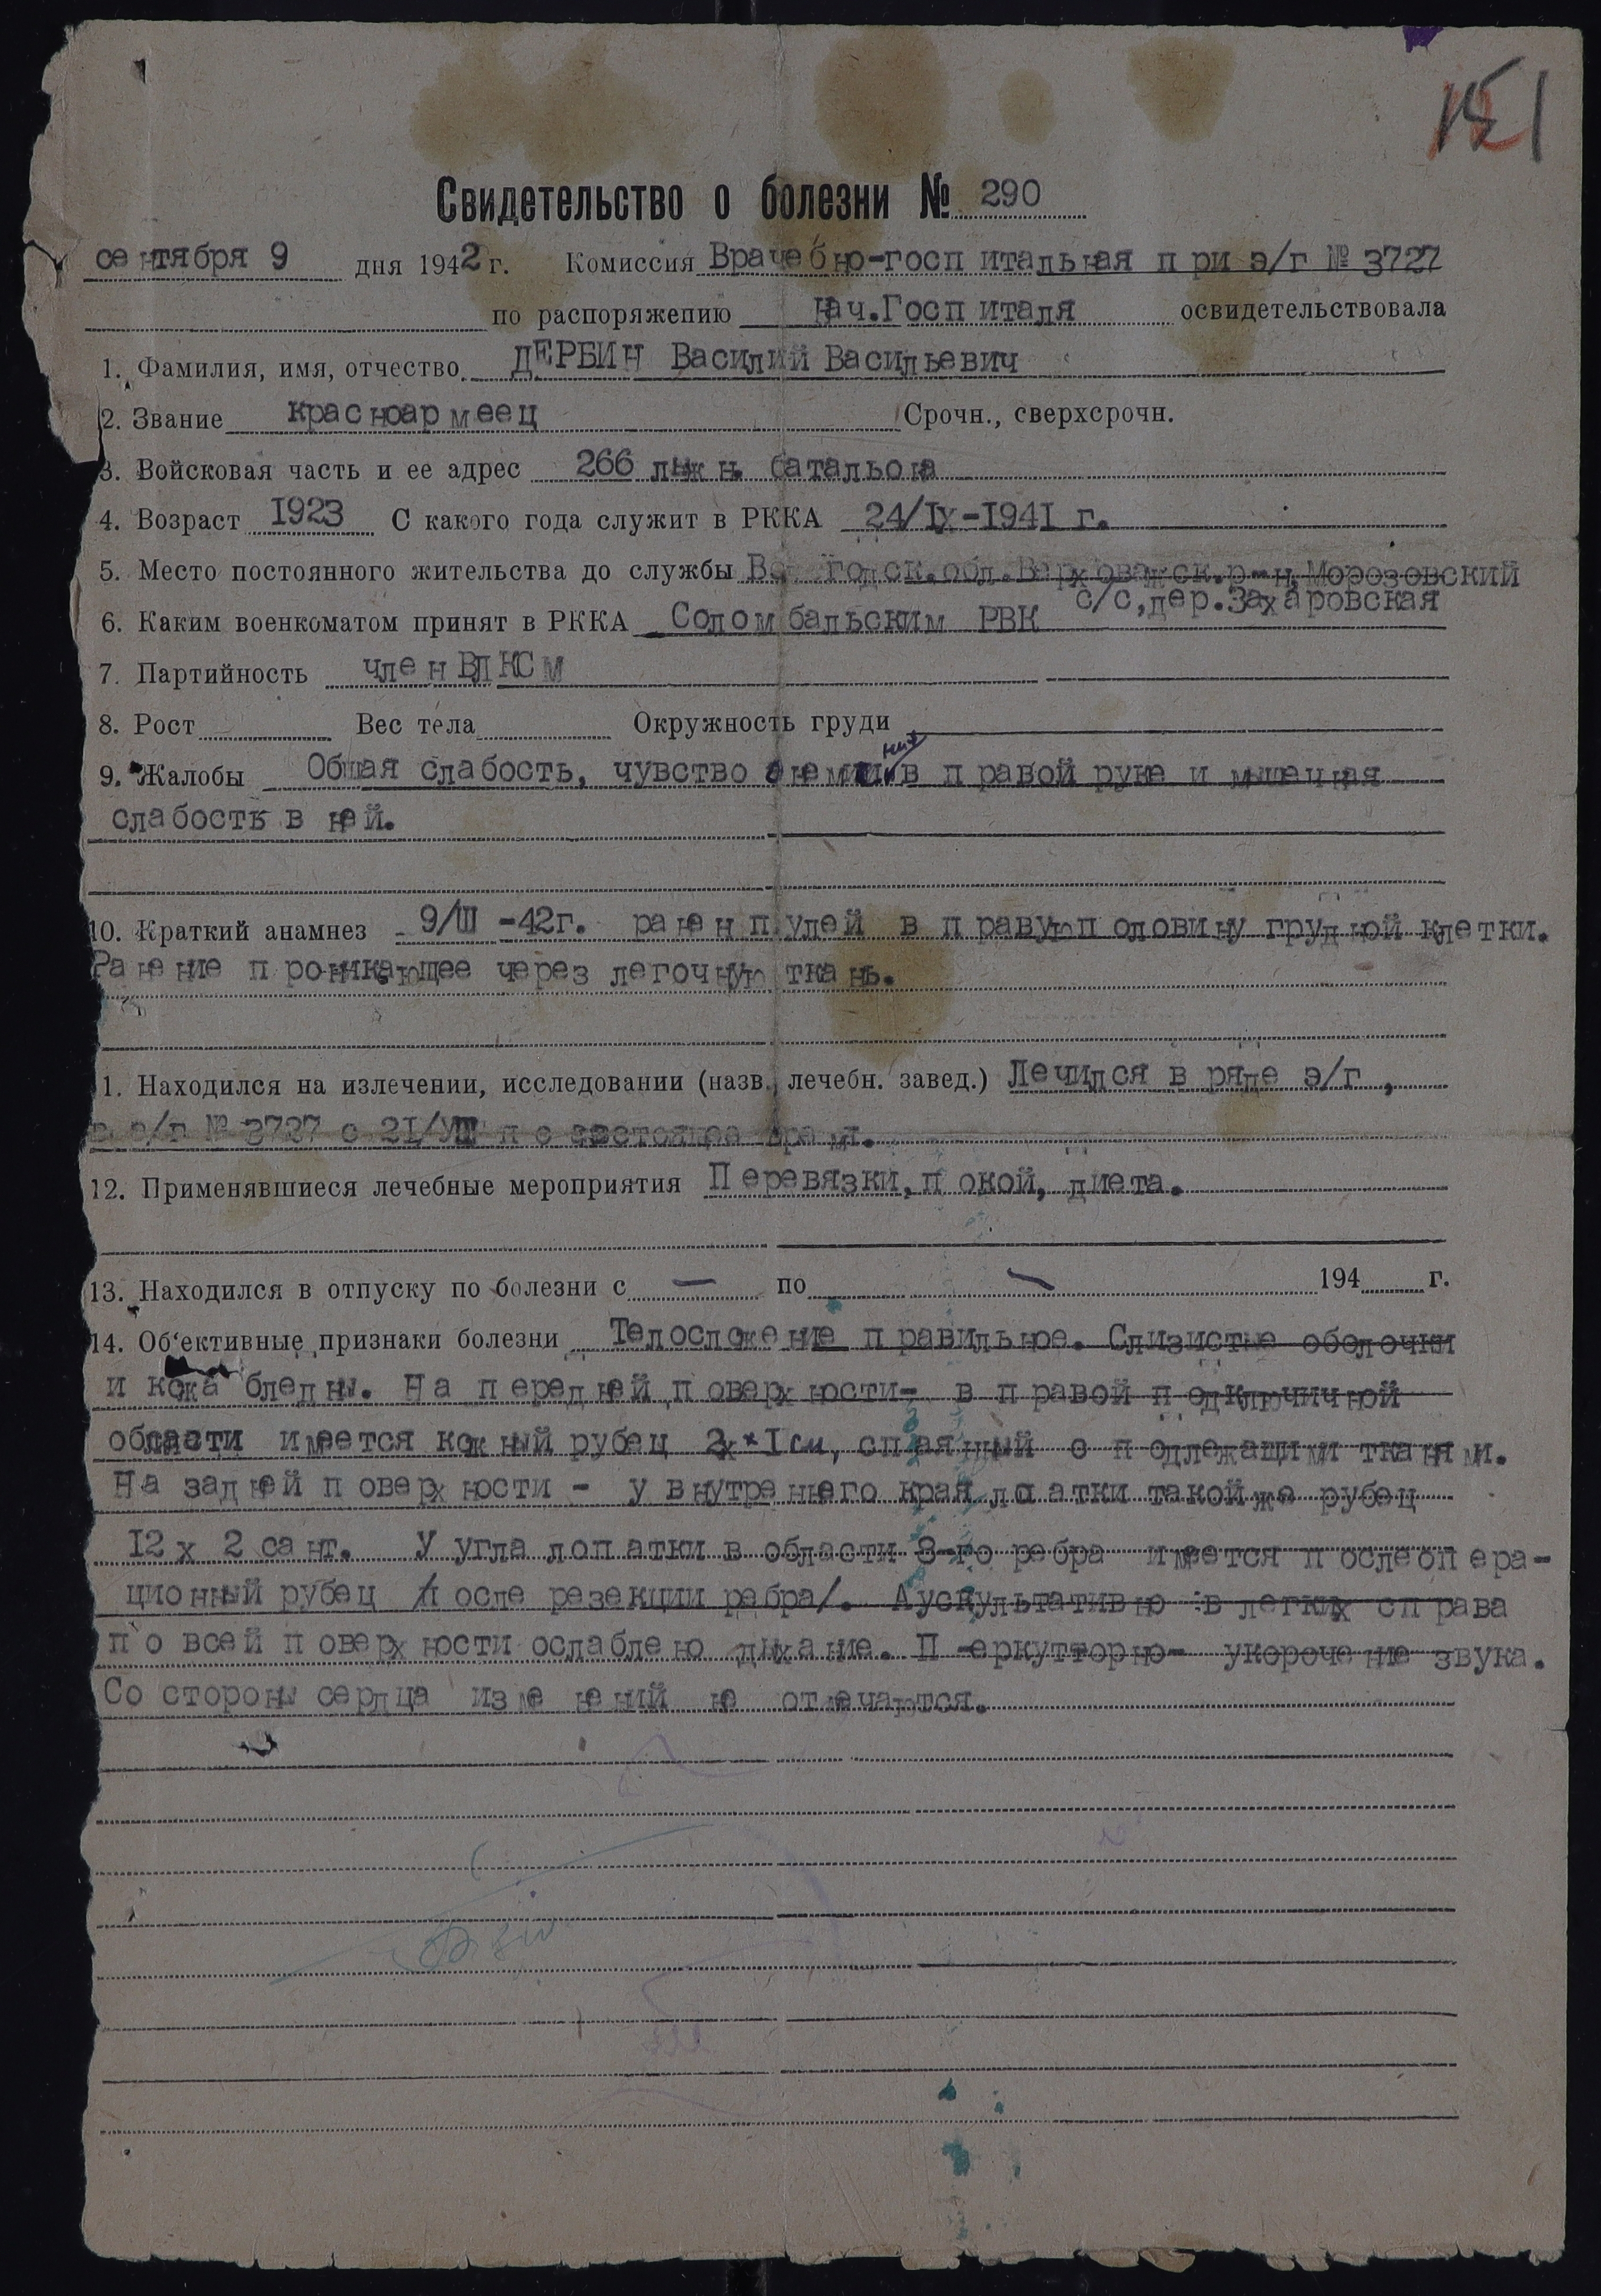 151
Свидетельство о болезни № 290
сентября 9 дня 1942 г. Комиссия Врачебно-госпитальная при э/г № 3727
по распоряжению Нач.Госпиталя освидетельствовала
1. Фамилия, имя, отчество ДЕРБИН Василий Васильевич
2. Звание красноармеец Срочн., сверхсрочн.
3. Войсковая часть и ее адрес 266 лыжн. батальона
4. Возраст 1923 С какого года служит в РККА 24/IX-1941 г.
5. Место постоянного жительства до службы Вологодск.обл.Верховажск.р-н,Морозовский
с/с,дер.Захаровская
6. Каким военкоматом принят в РККА Соломбальским РВК
7. Партийность член ВЛКСМ
8. Рост Вес тела Окружность груди
9. Жалобы Общая слабость, чувство онемения в правой руке и мышечная
слабость в ней.
10. Краткий анамнез 9/III-42г. ранен пулей в правую половину грудной клетки.
Ранение проникающее через легочную ткань.
1. Находился на излечении, исследовании (назв. лечебн. завед.) Лечился в ряде э/г,
в э/г № 3727 с 21/VIII по настоящее время.
12. Применявшиеся лечебные мероприятия Перевязки, покой, диета.
13. Находился в отпуску по болезни с — по — 194 г.
14. Об'ективные признаки болезни Телосложение правильное. Слизистые оболочки
и кожа бледны. На передней поверхности- в правой подключичной
области имеется кожный рубец 2х1 см, спаянный с подлежащими тканями.
На задней поверхности - у внутреннего края лопатки такой же рубец
12 х 2 сант. У угла лопатки в области 8-го ребра имеется послеопера-
ционный рубец /после резекции ребра/. Аускультативно в легких справа
по всей поверхности ослаблено дыхание. П -еркутторно- укорочение звука.
Со стороны сердца изменений не отмечаются.